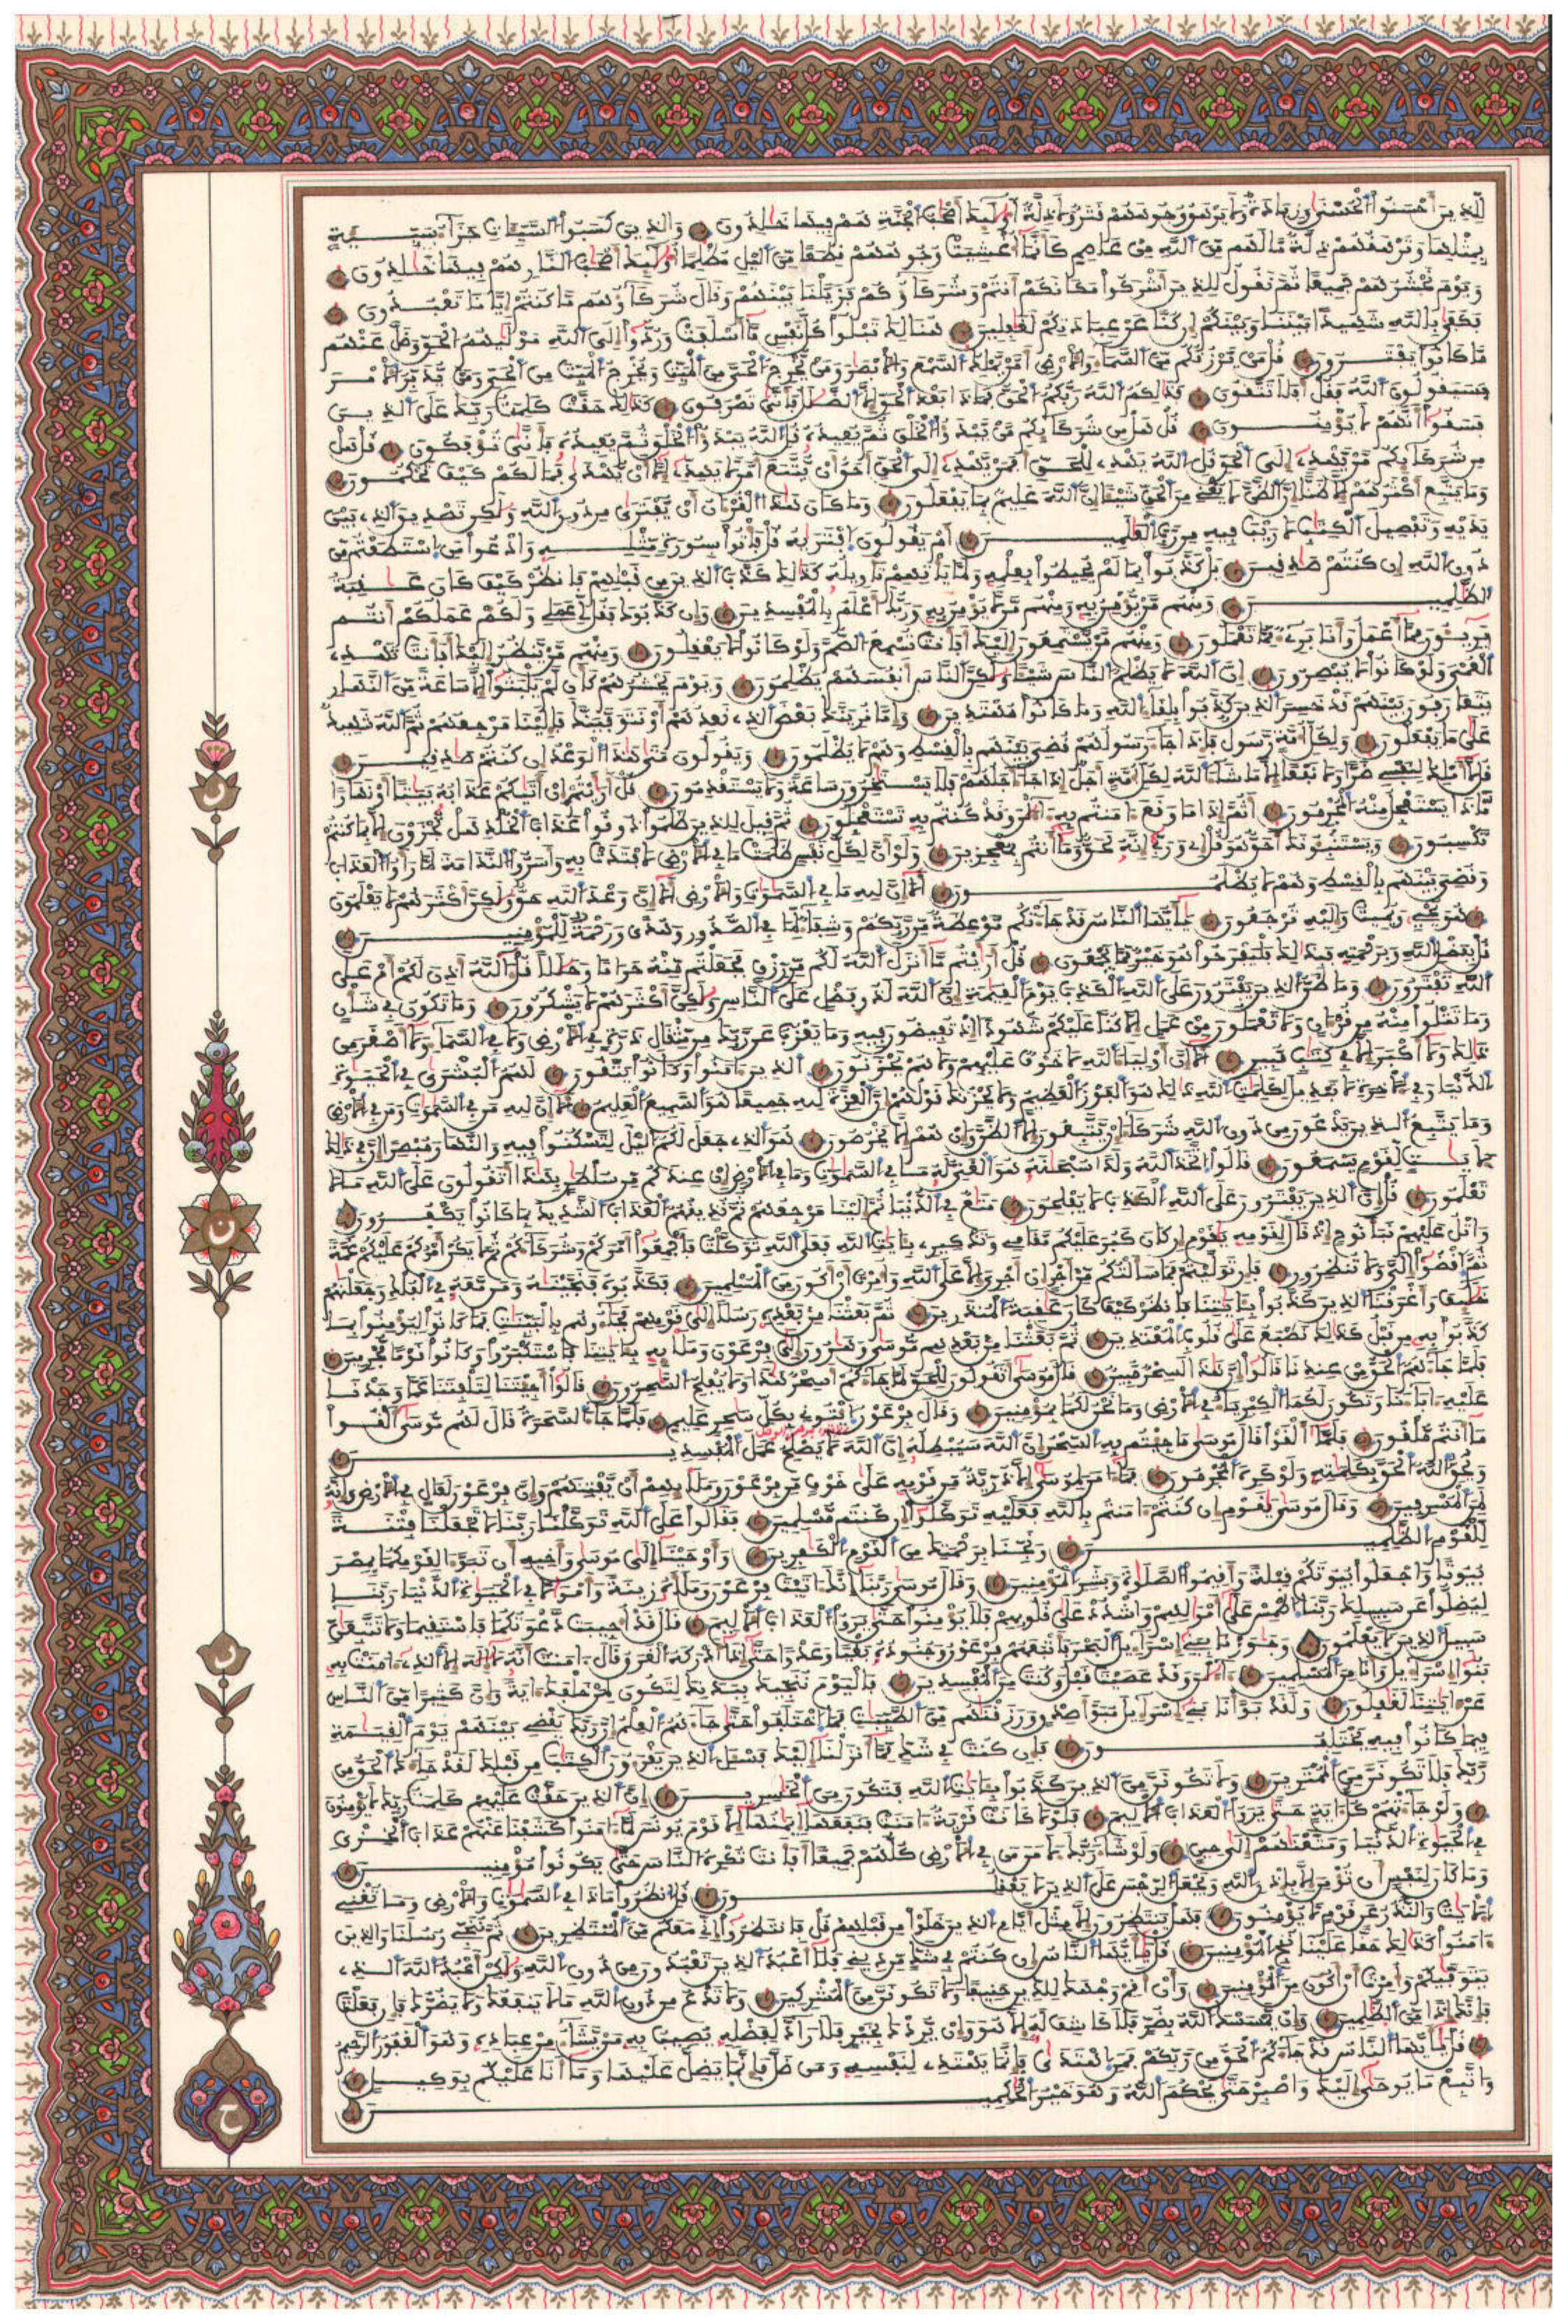 لِّلذِينَ أَحْسَنُوا الْحُسْنَىٰ وَزِيَادَةٌ وَلَا يَرْهَقُ وُجُوهَهُمْ قَتَرٌ وَلَا ذِلَّةٌ أُوْلَٰئِكَ أَصْحَٰبُ الْجَنَّةِ هُمْ فِيهَا خَٰلِدُونَ وَالذِينَ كَسَبُوا السَّيِّـَٔاتِ جَزَآءُ سَيِّئَةٍ
بِمِثْلِهَا وَتَرْهَقُهُمْ ذِلَّةٌ مَّا لَهُم مِّنَ اَللَّهِ مِنْ عَاصِمٍ كَأَنَّمَا أُغْشِيَتْ وُجُوهُهُمْ قِطَعًا مِّنَ اَلَّيْلِ مُظْلِمًا أُوْلَٰئِكَ أَصْحَٰبُ النَّارِ هُمْ فِيهَا خَٰلِدُونَ
وَيَوْمَ نَحْشُرُهُمْ جَمِيعًا ثُمَّ نَقُولُ لِلذِينَ أَشْرَكُوا مَكَانَكُمْ أَنتُمْ وَشُرَكَآؤُكُمْ فَزَيَّلْنَا بَيْنَهُمْ وَقَالَ شُرَكَآؤُهُم مَّا كُنتُمْ إِيَّانَا تَعْبُدُونَ
فَكَفَىٰ بِاللَّهِ شَهِيدًا بَيْنَنَا وَبَيْنَكُمْ إِن كُنَّا عَنْ عِبَادَتِكُمْ لَغَٰفِلِينَ هُنَالِكَ تَبْلُوا كُلُّ نَفْسٍ مَّا أَسْلَفَتْ وَرُدُّوا إِلَى اَللَّهِ مَوْلَيٰهُمُ الْحَقِّ وَضَلَّ عَنْهُم
مَّا كَانُوا يَفْتَرُونَ قُلْ مَنْ يَّرْزُقُكُم مِّنَ اَلسَّمَآءِ وَالْأَرْضِ أَمَّنْ يَّمْلِكُ السَّمْعَ وَالْأَبْصَٰرَ وَمَنْ يُّخْرِجُ الْحَيَّ مِنَ اَلْمَيِّتِ وَيُخْرِجُ الْمَيِّتَ مِنَ اَلْحَيِّ وَمَنْ يُّدَبِّرُ الْأَمْرَ
فَسَيَقُولُونَ اَللَّهُ فَقُلْ أَفَلَا تَتَّقُونَ فَذَٰلِكُمُ اللَّهُ رَبُّكُمُ الْحَقُّ فَمَاذَا بَعْدَ اَلْحَقِّ إِلَّا اَلضَّلَٰلُ فَأَنَّىٰ تُصْرَفُونَ كَذَٰلِكَ حَقَّتْ كَلِمَٰتُ رَبِّكَ عَلَى اَلذِينَ
فَسَقُوا أَنَّهُمْ لَا يُؤْمِنُونَ قُلْ هَلْ مِن شُرَكَآئِكُم مَّنْ يَّبْدَؤُا الْخَلْقَ ثُمَّ يُعِيدُهُ قُلِ اللَّهُ يَبْدَؤُا الْخَلْقَ ثُمَّ يُعِيدُهُ فَأَنَّىٰ تُؤْفَكُونَ قُلْ هَلْ
مِن شُرَكَآئِكُم مَّنْ يَّهْدِي إِلَى اَلْحَقِّ قُلِ اللَّهُ يَهْدِي لِلْحَقِّ أَفَمَنْ يَّهْدِي إِلَى اَلْحَقِّ أَحَقُّ أَنْ يُّتَّبَعَ أَمَّن لَّا يَهَدِّي إِلَّا أَنْ يُّهْدَىٰ فَمَا لَكُمْ كَيْفَ تَحْكُمُونَ
وَمَا يَتَّبِعُ أَكْثَرُهُمْ إِلَّا ظَنًّا إِنَّ اَلظَّنَّ لَا يُغْنِي مِنَ اَلْحَقِّ شَيْـًٔا إِنَّ اَللَّهَ عَلِيمٌ بِمَا يَفْعَلُونَ وَمَا كَانَ هَٰذَا اَلْقُرْءَانُ أَنْ يُّفْتَرَىٰ مِن دُونِ اِللَّهِ وَلَٰكِن تَصْدِيقَ اَلذِي بَيْنَ
يَدَيْهِ وَتَفْصِيلَ اَلْكِتَٰبِ لَا رَيْبَ فِيهِ مِن رَّبِّ اِلْعَٰلَمِينَ أَمْ يَقُولُونَ اَفْتَرَيٰهُ قُلْ فَأْتُوا بِسُورَةٍ مِّثْلِهِ وَادْعُوا مَنِ اِسْتَطَعْتُم مِّن
دُونِ اِللَّهِ إِن كُنتُمْ صَٰدِقِينَ بَلْ كَذَّبُوا بِمَا لَمْ يُحِيطُوا بِعِلْمِهِ وَلَمَّا يَأْتِهِمْ تَأْوِيلُهُ كَذَٰلِكَ كَذَّبَ اَلذِينَ مِن قَبْلِهِمْ فَانظُرْ كَيْفَ كَانَ عَٰقِبَةُ
الظَّٰلِمِينَ وَمِنْهُم مَّنْ يُّؤْمِنُ بِهِ وَمِنْهُم مَّن لَّا يُؤْمِنُ بِهِ وَرَبُّكَ أَعْلَمُ بِالْمُفْسِدِينَ وَإِن كَذَّبُوكَ فَقُل لِّي عَمَلِي وَلَكُمْ عَمَلُكُمْ أَنتُم
بَرِيٓـُٔونَ مِمَّا أَعْمَلُ وَأَنَا بَرِيٓءٌ مِّمَّا تَعْمَلُونَ وَمِنْهُم مَّنْ يَّسْتَمِعُونَ إِلَيْكَ أَفَأَنتَ تُسْمِعُ الصُّمَّ وَلَوْ كَانُوا لَا يَعْقِلُونَ وَمِنْهُم مَّنْ يَّنظُرُ إِلَيْكَ أَفَأَنتَ تَهْدِي
الْعُمْيَ وَلَوْ كَانُوا لَا يُبْصِرُونَ إِنَّ اَللَّهَ لَا يَظْلِمُ النَّاسَ شَيْـًٔا وَلَٰكِنَّ اَلنَّاسَ أَنفُسَهُمْ يَظْلِمُونَ وَيَوْمَ نَحْشُرُهُمْ كَأَن لَّمْ يَلْبَثُوا إِلَّا سَاعَةً مِّنَ اَلنَّهَارِ
يَتَعَارَفُونَ بَيْنَهُمْ قَدْ خَسِرَ اَلذِينَ كَذَّبُوا بِلِقَآءِ اِللَّهِ وَمَا كَانُوا مُهْتَدِينَ وَإِمَّا نُرِيَنَّكَ بَعْضَ اَلذِي نَعِدُهُمْ أَوْ نَتَوَفَّيَنَّكَ فَإِلَيْنَا مَرْجِعُهُمْ ثُمَّ اَللَّهُ شَهِيدٌ
عَلَىٰ مَا يَفْعَلُونَ وَلِكُلِّ أُمَّةٍ رَّسُولٌ فَإِذَا جَآءَ رَسُولُهُمْ قُضِيَ بَيْنَهُم بِالْقِسْطِ وَهُمْ لَا يُظْلَمُونَ وَيَقُولُونَ مَتَىٰ هَٰذَا اَلْوَعْدُ إِن كُنتُمْ صَٰدِقِينَ
قُل لَّا أَمْلِكُ لِنَفْسِي ضَرًّا وَلَا نَفْعًا إِلَّا مَا شَآءَ اَللَّهُ لِكُلِّ أُمَّةٍ أَجَلٌ إِذَا جَآءَ أَجَلُهُمْ فَلَا يَسْتَـٰٔخِرُونَ سَاعَةً وَلَا يَسْتَقْدِمُونَ قُلْ أَرَٰيْتُمْ إِنْ أَتَيٰكُمْ عَذَابُهُ بَيَٰتًا أَوْ نَهَارًا
مَّاذَا يَسْتَعْجِلُ مِنْهُ الْمُجْرِمُونَ أَثُمَّ إِذَا مَا وَقَعَ ءَامَنتُم بِهِ ءَآلَٰنَ وَقَدْ كُنتُم بِهِ تَسْتَعْجِلُونَ ثُمَّ قِيلَ لِلذِينَ ظَلَمُوا ذُوقُوا عَذَابَ اَلْخُلْدِ هَلْ تُجْزَوْنَ إِلَّا بِمَا كُنتُمْ
تَكْسِبُونَ وَيَسْتَنۢبِـُٔونَكَ أَحَقٌّ هُوَ قُلْ إِي وَرَبِّي إِنَّهُ لَحَقٌّ وَمَا أَنتُم بِمُعْجِزِينَ وَلَوْ أَنَّ لِكُلِّ نَفْسٍ ظَلَمَتْ مَا فِي اِلْأَرْضِ لَافْتَدَتْ بِهِ وَأَسَرُّوا اُلنَّدَامَةَ لَمَّا رَأَوُا اُلْعَذَابَ
وَقُضِيَ بَيْنَهُم بِالْقِسْطِ وَهُمْ لَا يُظْلَمُونَ أَلَا إِنَّ لِلهِ مَا فِي اِلسَّمَٰوَٰتِ وَالْأَرْضِ أَلَا إِنَّ وَعْدَ اَللَّهِ حَقٌّ وَلَٰكِنَّ أَكْثَرَهُمْ لَا يَعْلَمُونَ
هُوَ يُحْيِ وَيُمِيتُ وَإِلَيْهِ تُرْجَعُونَ يَٰأَيُّهَا اَلنَّاسُ قَدْ جَآءَتْكُم مَّوْعِظَةٌ مِّن رَّبِّكُمْ وَشِفَآءٌ لِّمَا فِي اِلصُّدُورِ وَهُدًى وَرَحْمَةٌ لِّلْمُؤْمِنِينَ
قُلْ بِفَضْلِ اِللَّهِ وَبِرَحْمَتِهِ فَبِذَٰلِكَ فَلْيَفْرَحُوا هُوَ خَيْرٌ مِّمَّا يَجْمَعُونَ قُلْ أَرَٰيْتُم مَّا أَنزَلَ اَللَّهُ لَكُم مِّن رِّزْقٍ فَجَعَلْتُم مِّنْهُ حَرَامًا وَحَلَٰلًا قُلْ ءَآللَّهُ أَذِنَ لَكُمْ أَمْ عَلَى
اَللَّهِ تَفْتَرُونَ وَمَا ظَنُّ اُلذِينَ يَفْتَرُونَ عَلَى اَللَّهِ اِلْكَذِبَ يَوْمَ اَلْقِيَٰمَةِ إِنَّ اَللَّهَ لَذُو فَضْلٍ عَلَى اَلنَّاسِ وَلَٰكِنَّ أَكْثَرَهُمْ لَا يَشْكُرُونَ وَمَا تَكُونُ فِي شَأْنٍ
وَمَا تَتْلُوا مِنْهُ مِن قُرْءَانٍ وَلَا تَعْمَلُونَ مِنْ عَمَلٍ إِلَّا كُنَّا عَلَيْكُمْ شُهُودًا إِذْ تُفِيضُونَ فِيهِ وَمَا يَعْزُبُ عَن رَّبِّكَ مِن مِّثْقَالِ ذَرَّةٍ فِي اِلْأَرْضِ وَلَا فِي اِلسَّمَآءِ وَلَا أَصْغَرَ مِن
ذَٰلِكَ وَلَا أَكْبَرَ إِلَّا فِي كِتَٰبٍ مُّبِينٍ أَلَا إِنَّ أَوْلِيَآءَ اَللَّهِ لَا خَوْفٌ عَلَيْهِمْ وَلَا هُمْ يَحْزَنُونَ اَلذِينَ ءَامَنُوا وَكَانُوا يَتَّقُونَ لَهُمُ اُلْبُشْرَىٰ فِي اِلْحَيَوٰةِ
اِلدُّنْيَا وَفِي اِلْأَخِرَةِ لَا تَبْدِيلَ لِكَلِمَٰتِ اِللَّهِ ذَٰلِكَ هُوَ اَلْفَوْزُ اُلْعَظِيمُ وَلَا يُحْزِنكَ قَوْلُهُمْ إِنَّ اَلْعِزَّةَ لِلهِ جَمِيعًا هُوَ اَلسَّمِيعُ اُلْعَلِيمُ أَلَا إِنَّ لِلهِ مَن فِي اِلسَّمَٰوَٰتِ وَمَن فِي اِلْأَرْضِ
وَمَا يَتَّبِعُ اُلذِينَ يَدْعُونَ مِن دُونِ اِللَّهِ شُرَكَآءَ إِنْ يَّتَّبِعُونَ إِلَّا اَلظَّنَّ وَإِنْ هُمْ إِلَّا يَخْرُصُونَ هُوَ اَلذِي جَعَلَ لَكُمُ اُلَّيْلَ لِتَسْكُنُوا فِيهِ وَالنَّهَارَ مُبْصِرًا إِنَّ فِي ذَٰلِكَ
لَأٓيَٰتٍ لِّقَوْمٍ يَّسْمَعُونَ قَالُوا اُتَّخَذَ اَللَّهُ وَلَدًا سُبْحَٰنَهُ هُوَ اَلْغَنِيُّ لَهُ مَا فِي اِلسَّمَٰوَٰتِ وَمَا فِي اِلْأَرْضِ إِنْ عِندَكُم مِّن سُلْطَٰنٍ بِهَٰذَا أَتَقُولُونَ عَلَى اَللَّهِ مَا لَا
تَعْلَمُونَ قُلْ إِنَّ اَلذِينَ يَفْتَرُونَ عَلَى اَللَّهِ اِلْكَذِبَ لَا يُفْلِحُونَ مَتَٰعٌ فِي اِلدُّنْيَا ثُمَّ إِلَيْنَا مَرْجِعُهُمْ ثُمَّ نُذِيقُهُمُ اُلْعَذَابَ اَلشَّدِيدَ بِمَا كَانُوا يَكْفُرُونَ
وَاتْلُ عَلَيْهِمْ نَبَأَ نُوحٍ إِذْ قَالَ لِقَوْمِهِ يَٰقَوْمِ إِن كَانَ كَبُرَ عَلَيْكُم مَّقَامِي وَتَذْكِيرِي بِـَٔايَٰتِ اِللَّهِ فَعَلَى اَللَّهِ تَوَكَّلْتُ فَأَجْمِعُوا أَمْرَكُمْ وَشُرَكَآءَكُمْ ثُمَّ لَا يَكُنْ أَمْرُكُمْ عَلَيْكُمْ غُمَّةً
ثُمَّ اَقْضُوا إِلَيَّ وَلَا تُنظِرُونِ فَإِن تَوَلَّيْتُمْ فَمَا سَأَلْتُكُم مِّنْ أَجْرٍ إِنْ أَجْرِيَ إِلَّا عَلَى اَللَّهِ وَأُمِرْتُ أَنْ أَكُونَ مِنَ اَلْمُسْلِمِينَ فَكَذَّبُوهُ فَنَجَّيْنَٰهُ وَمَن مَّعَهُ فِي اِلْفُلْكِ وَجَعَلْنَٰهُمْ
خَلَٰٓئِفَ وَأَغْرَقْنَا اَلذِينَ كَذَّبُوا بِـَٔايَٰتِنَا فَانظُرْ كَيْفَ كَانَ عَٰقِبَةُ اُلْمُنذَرِينَ ثُمَّ بَعَثْنَا مِنْ بَعْدِهِ رُسُلًا إِلَىٰ قَوْمِهِمْ فَجَآءُوهُم بِالْبَيِّنَٰتِ فَمَا كَانُوا لِيُؤْمِنُوا بِمَا
كَذَّبُوا بِهِ مِن قَبْلُ كَذَٰلِكَ نَطْبَعُ عَلَىٰ قُلُوبِ اِلْمُعْتَدِينَ ثُمَّ بَعَثْنَا مِنْ بَعْدِهِم مُّوسَىٰ وَهَٰرُونَ إِلَىٰ فِرْعَوْنَ وَمَلَإِيْهِ بِـَٔايَٰتِنَا فَاسْتَكْبَرُوا وَكَانُوا قَوْمًا مُّجْرِمِينَ
فَلَمَّا جَآءَهُمُ اُلْحَقُّ مِنْ عِندِنَا قَالُوا إِنَّ هَٰذَا لَسِحْرٌ مُّبِينٌ قَالَ مُوسَىٰ أَتَقُولُونَ لِلْحَقِّ لَمَّا جَآءَكُمْ أَسِحْرٌ هَٰذَا وَلَا يُفْلِحُ اُلسَّٰحِرُونَ قَالُوا أَجِئْتَنَا لِتَلْفِتَنَا عَمَّا وَجَدْنَا
عَلَيْهِ ءَابَآءَنَا وَتَكُونَ لَكُمَا اَلْكِبْرِيَآءُ فِي اِلْأَرْضِ وَمَا نَحْنُ لَكُمَا بِمُؤْمِنِينَ وَقَالَ فِرْعَوْنُ اُئْتُونِي بِكُلِّ سَٰحِرٍ عَلِيمٍ فَلَمَّا جَآءَ اَلسَّحَرَةُ قَالَ لَهُم مُّوسَىٰ أَلْقُوا
مَا أَنتُم مُّلْقُونَ فَلَمَّا أَلْقَوْا قَالَ مُوسَىٰ مَا جِئْتُم بِهِ اِلسِّحْرُ إِنَّ اَللَّهَ سَيُبْطِلُهُ إِنَّ اَللَّهَ لَا يُصْلِحُ عَمَلَ اَلْمُفْسِدِينَ
وَيُحِقُّ اُللَّهُ اُلْحَقَّ بِكَلِمَٰتِهِ وَلَوْ كَرِهَ اَلْمُجْرِمُونَ فَمَا ءَامَنَ لِمُوسَىٰ إِلَّا ذُرِّيَّةٌ مِّن قَوْمِهِ عَلَىٰ خَوْفٍ مِّن فِرْعَوْنَ وَمَلَإِيْهِمْ أَنْ يَّفْتِنَهُمْ وَإِنَّ فِرْعَوْنَ لَعَالٍ فِي اِلْأَرْضِ وَإِنَّهُ
لَمِنَ اَلْمُسْرِفِينَ وَقَالَ مُوسَىٰ يَٰقَوْمِ إِن كُنتُمْ ءَامَنتُم بِاللَّهِ فَعَلَيْهِ تَوَكَّلُوا إِن كُنتُم مُّسْلِمِينَ فَقَالُوا عَلَى اَللَّهِ تَوَكَّلْنَا رَبَّنَا لَا تَجْعَلْنَا فِتْنَةً
لِّلْقَوْمِ اِلظَّٰلِمِينَ وَنَجِّنَا بِرَحْمَتِكَ مِنَ اَلْقَوْمِ اِلْكَٰفِرِينَ وَأَوْحَيْنَا إِلَىٰ مُوسَىٰ وَأَخِيهِ أَن تَبَوَّءَا لِقَوْمِكُمَا بِمِصْرَ
بُيُوتًا وَاجْعَلُوا بُيُوتَكُمْ قِبْلَةً وَأَقِيمُوا اُلصَّلَوٰةَ وَبَشِّرِ اِلْمُؤْمِنِينَ وَقَالَ مُوسَىٰ رَبَّنَا إِنَّكَ ءَاتَيْتَ فِرْعَوْنَ وَمَلَأَهُ زِينَةً وَأَمْوَٰلًا فِي اِلْحَيَوٰةِ اِلدُّنْيَا رَبَّنَا
لِيَضِلُّوا عَن سَبِيلِكَ رَبَّنَا اَطْمِسْ عَلَىٰ أَمْوَٰلِهِمْ وَاشْدُدْ عَلَىٰ قُلُوبِهِمْ فَلَا يُؤْمِنُوا حَتَّىٰ يَرَوُا اُلْعَذَابَ اَلْأَلِيمَ قَالَ قَدْ أُجِيبَت دَّعْوَتُكُمَا فَاسْتَقِيمَا وَلَا تَتَّبِعَٰنِّ
سَبِيلَ اَلذِينَ لَا يَعْلَمُونَ وَجَٰوَزْنَا بِبَنِي إِسْرَآءِيلَ اَلْبَحْرَ فَأَتْبَعَهُمْ فِرْعَوْنُ وَجُنُودُهُ بَغْيًا وَعَدْوًا حَتَّىٰ إِذَا أَدْرَكَهُ اُلْغَرَقُ قَالَ ءَامَنتُ أَنَّهُ لَا إِلَٰهَ إِلَّا اَلذِي ءَامَنَتْ بِهِ
بَنُوا إِسْرَآءِيلَ وَأَنَا مِنَ اَلْمُسْلِمِينَ ءَآلَٰنَ وَقَدْ عَصَيْتَ قَبْلُ وَكُنتَ مِنَ اَلْمُفْسِدِينَ فَالْيَوْمَ نُنَجِّيكَ بِبَدَنِكَ لِتَكُونَ لِمَنْ خَلْفَكَ ءَايَةً وَإِنَّ كَثِيرًا مِّنَ اَلنَّاسِ
عَنْ ءَايَٰتِنَا لَغَٰفِلُونَ وَلَقَدْ بَوَّأْنَا بَنِي إِسْرَآءِيلَ مُبَوَّأَ صِدْقٍ وَرَزَقْنَٰهُم مِّنَ اَلطَّيِّبَٰتِ فَمَا اَخْتَلَفُوا حَتَّىٰ جَآءَهُمُ اُلْعِلْمُ إِنَّ رَبَّكَ يَقْضِي بَيْنَهُمْ يَوْمَ اَلْقِيَٰمَةِ
فِيمَا كَانُوا فِيهِ يَخْتَلِفُونَ فَإِن كُنتَ فِي شَكٍّ مِّمَّا أَنزَلْنَا إِلَيْكَ فَسْـَٔلِ اِلذِينَ يَقْرَءُونَ اَلْكِتَٰبَ مِن قَبْلِكَ لَقَدْ جَآءَكَ اَلْحَقُّ مِن
رَّبِّكَ فَلَا تَكُونَنَّ مِنَ اَلْمُمْتَرِينَ وَلَا تَكُونَنَّ مِنَ اَلذِينَ كَذَّبُوا بِـَٔايَٰتِ اِللَّهِ فَتَكُونَ مِنَ اَلْخَٰسِرِينَ إِنَّ اَلذِينَ حَقَّتْ عَلَيْهِمْ كَلِمَٰتُ رَبِّكَ لَا يُؤْمِنُونَ
وَلَوْ جَآءَتْهُمْ كُلُّ ءَايَةٍ حَتَّىٰ يَرَوُا اُلْعَذَابَ اَلْأَلِيمَ فَلَوْلَا كَانَتْ قَرْيَةٌ ءَامَنَتْ فَنَفَعَهَا إِيمَٰنُهَا إِلَّا قَوْمَ يُونُسَ لَمَّا ءَامَنُوا كَشَفْنَا عَنْهُمْ عَذَابَ اَلْخِزْيِ
فِي اِلْحَيَوٰةِ اِلدُّنْيَا وَمَتَّعْنَٰهُمْ إِلَىٰ حِينٍ وَلَوْ شَآءَ رَبُّكَ لَأٓمَنَ مَن فِي اِلْأَرْضِ كُلُّهُمْ جَمِيعًا أَفَأَنتَ تُكْرِهُ اُلنَّاسَ حَتَّىٰ يَكُونُوا مُؤْمِنِينَ
وَمَا كَانَ لِنَفْسٍ أَن تُؤْمِنَ إِلَّا بِإِذْنِ اِللَّهِ وَيَجْعَلُ اُلرِّجْسَ عَلَى اَلذِينَ لَا يَعْقِلُونَ قُلُ اُنظُرُوا مَاذَا فِي اِلسَّمَٰوَٰتِ وَالْأَرْضِ وَمَا تُغْنِي
اِلْأٓيَٰتُ وَالنُّذُرُ عَن قَوْمٍ لَّا يُؤْمِنُونَ فَهَلْ يَنتَظِرُونَ إِلَّا مِثْلَ أَيَّامِ اِلذِينَ خَلَوْا مِن قَبْلِهِمْ قُلْ فَانتَظِرُوا إِنِّي مَعَكُم مِّنَ اَلْمُنتَظِرِينَ ثُمَّ نُنَجِّي رُسُلَنَا وَالذِينَ
ءَامَنُوا كَذَٰلِكَ حَقًّا عَلَيْنَا نُنَجِّ اِلْمُؤْمِنِينَ قُلْ يَٰأَيُّهَا اَلنَّاسُ إِن كُنتُمْ فِي شَكٍّ مِّن دِينِي فَلَا أَعْبُدُ اُلذِينَ تَعْبُدُونَ مِن دُونِ اِللَّهِ وَلَٰكِنْ أَعْبُدُ اُللَّهَ اَلذِي
يَتَوَفَّيٰكُمْ وَأُمِرْتُ أَنْ أَكُونَ مِنَ اَلْمُؤْمِنِينَ وَأَنْ أَقِمْ وَجْهَكَ لِلدِّينِ حَنِيفًا وَلَا تَكُونَنَّ مِنَ اَلْمُشْرِكِينَ وَلَا تَدْعُ مِن دُونِ اِللَّهِ مَا لَا يَنفَعُكَ وَلَا يَضُرُّكَ فَإِن فَعَلْتَ
فَإِنَّكَ إِذًا مِّنَ اَلظَّٰلِمِينَ وَإِنْ يَّمْسَسْكَ اَللَّهُ بِضُرٍّ فَلَا كَاشِفَ لَهُ إِلَّا هُوَ وَإِنْ يُّرِدْكَ بِخَيْرٍ فَلَا رَآدَّ لِفَضْلِهِ يُصِيبُ بِهِ مَنْ يَّشَآءُ مِنْ عِبَادِهِ وَهُوَ اَلْغَفُورُ اُلرَّحِيمُ
قُلْ يَٰأَيُّهَا اَلنَّاسُ قَدْ جَآءَكُمُ اُلْحَقُّ مِن رَّبِّكُمْ فَمَنِ اِهْتَدَىٰ فَإِنَّمَا يَهْتَدِي لِنَفْسِهِ وَمَن ضَلَّ فَإِنَّمَا يَضِلُّ عَلَيْهَا وَمَا أَنَا عَلَيْكُم بِوَكِيلٍ
وَاتَّبِعْ مَا يُوحَىٰ إِلَيْكَ وَاصْبِرْ حَتَّىٰ يَحْكُمَ اَللَّهُ وَهُوَ خَيْرُ اُلْحَٰكِمِينَ